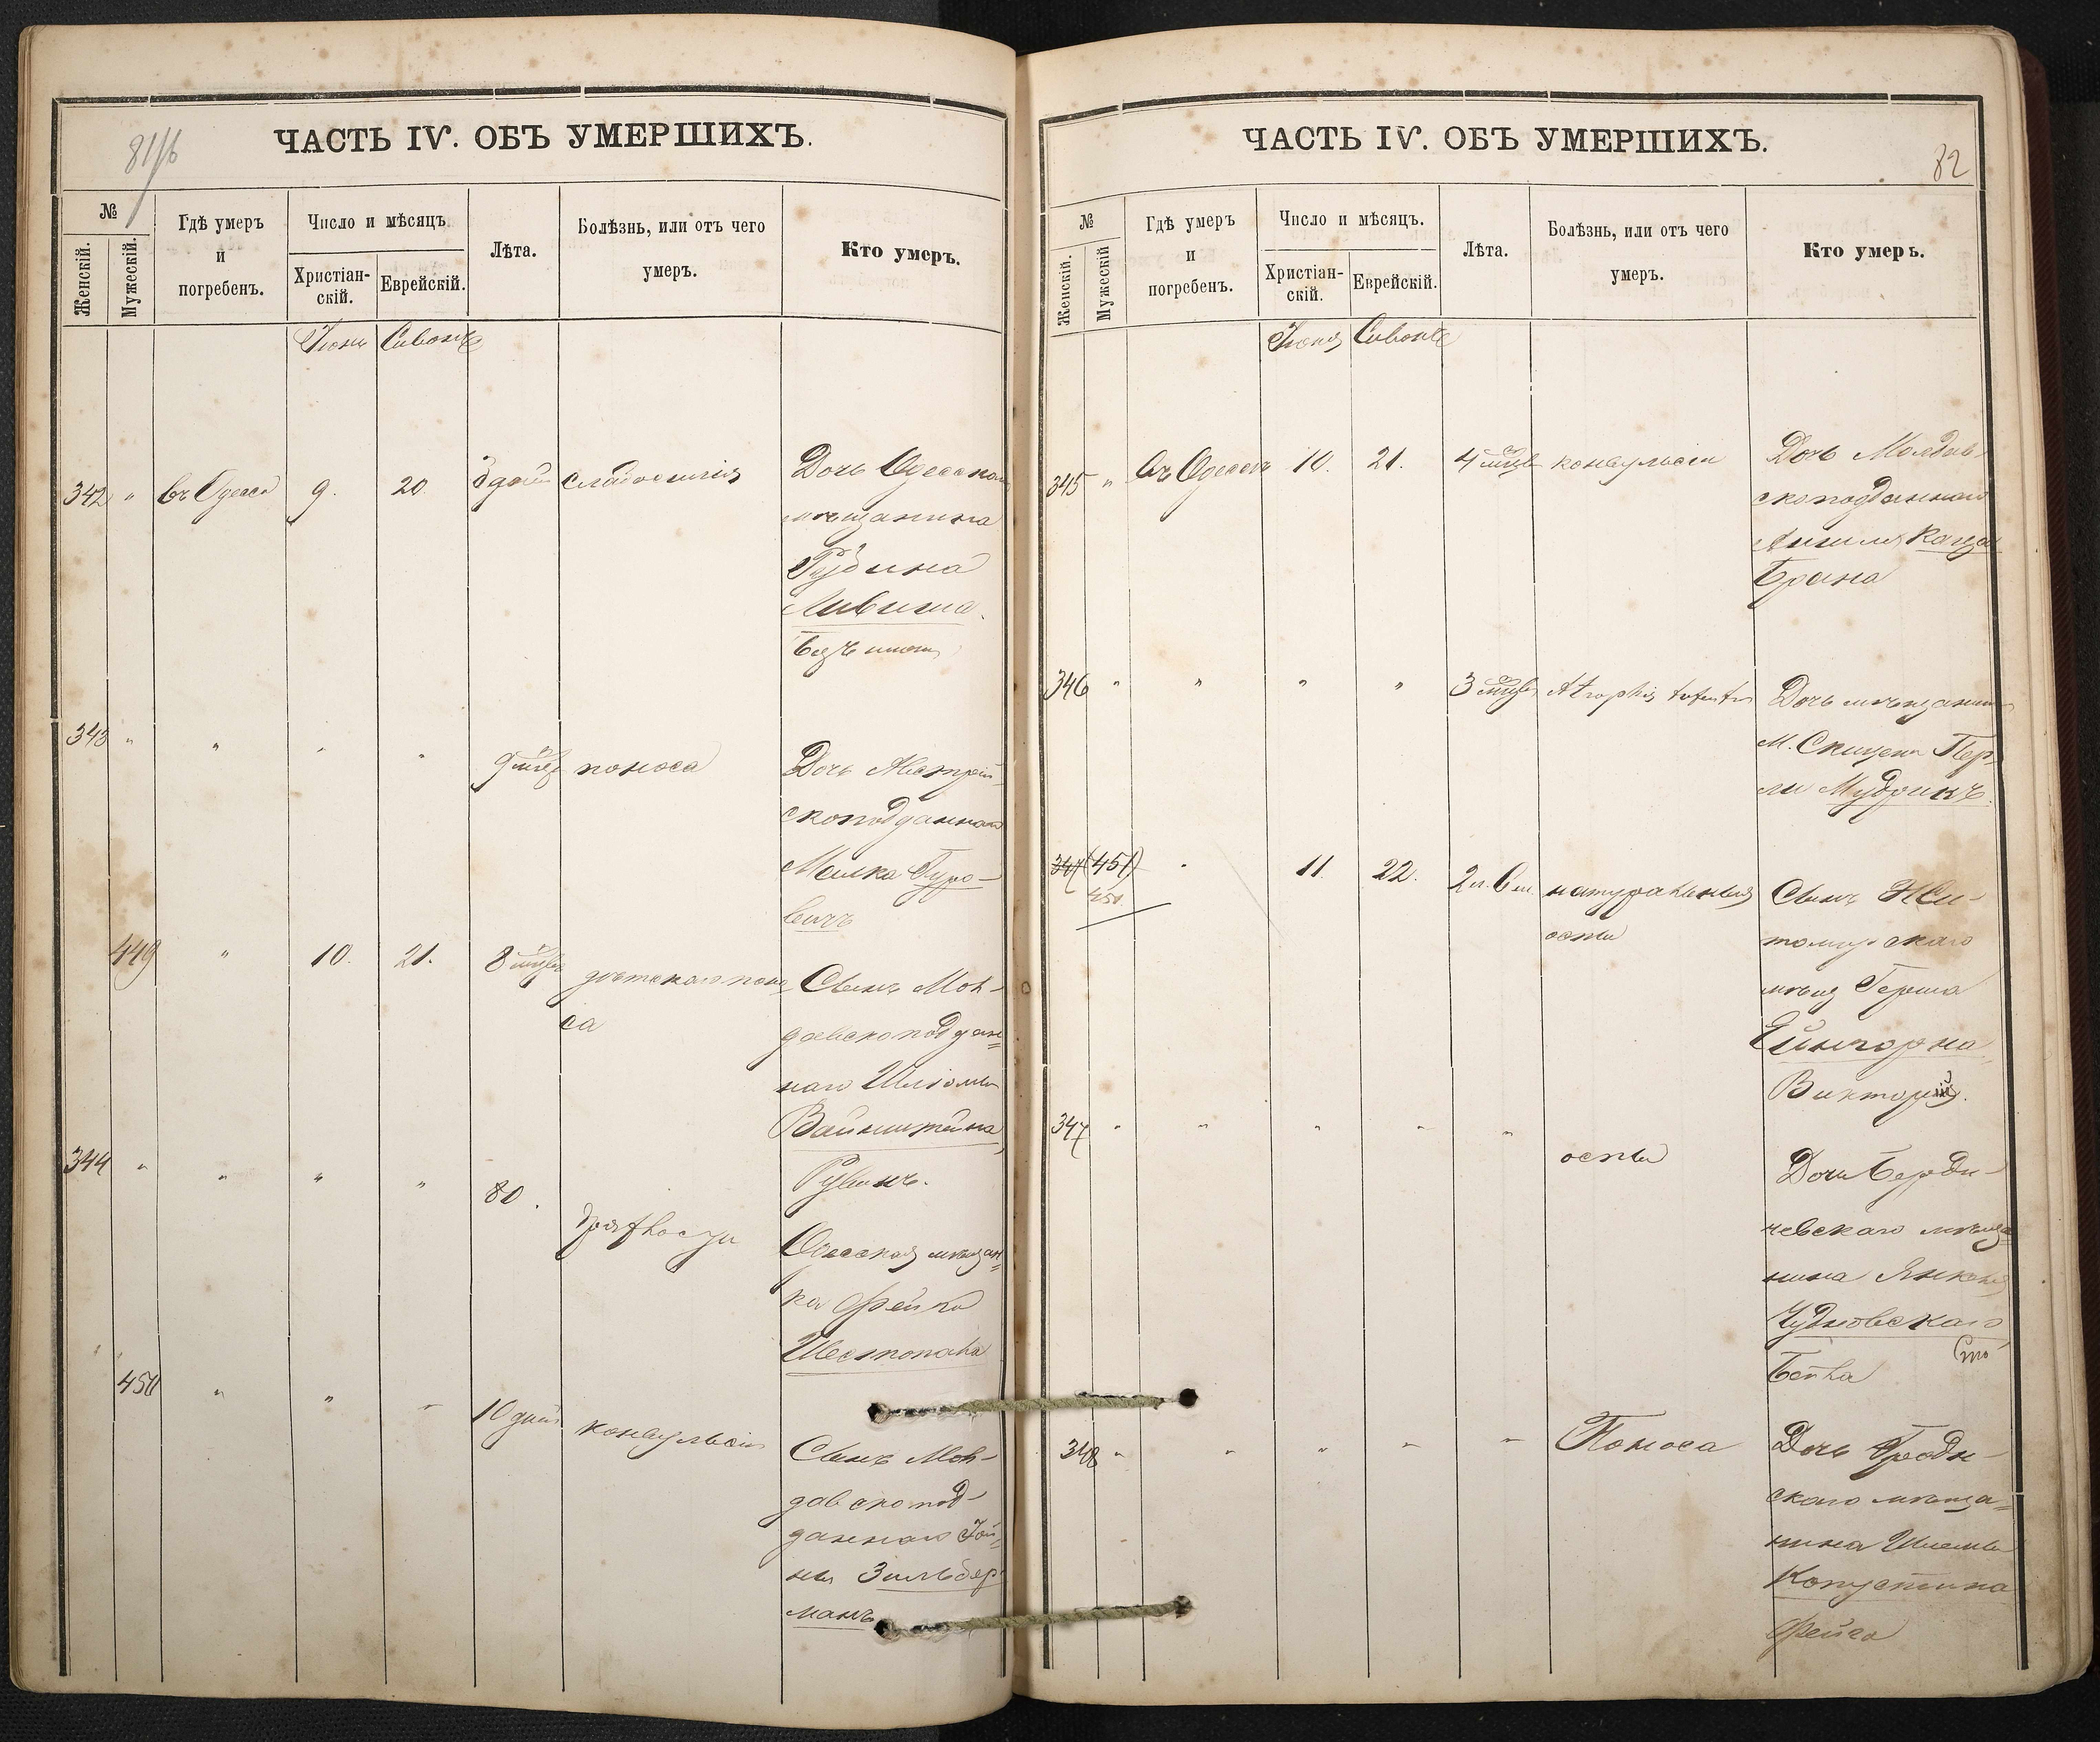 81/б
ЧАСТЬ IV. ОБЪ УМЕРШИХЪ.
№
Женскій.
Мужескій.
Гдѣ умеръ
и
погребенъ.
Число и мѣсяцъ
Христіан-
скій.
Еврейскій.
Лѣта.
Болѣзнь, или отъ чего
умеръ.
Кто умеръ.
Іюнь Сивонъ
342 " въ Одессѣ 9. 20. дней
Дочь Одесскаго
мѣщанина
Рубина
Лившица.
безъ имени
343 " " " " 9 мѣсяц поноса
Дочь Австрій-
скоподданнаго
Мошка Гуро-
вичъ
449 " 10. 21. 8 мѣсяц дѣтскаго поно-
са
Сынъ Мол-
давскоподдан=
наго Шліомы
Вайнштейна
Рувинъ.
344 " " " " 80. дряхлости
Одесская мѣщан=
ка Фейга
Шестопала
450 " " " 10 дней конвульсіи
Сынъ Мол-
давскопод-
даннаго Іой-
ны Зильбер
манъ
ЧАСТЬ IV. ОБЪ УМЕРШИХЪ.
82
№
Женскій.
Мужескій
Гдѣ умеръ
и
погребенъ.
Число и мѣсяцъ.
Христіан-
скій.
Еврейскій.
Лѣта.
Болѣзнь, или отъ чего
умеръ.
Кто умеръ.
Іюня Сивонъ
345 " въ Одессѣ 10. 21. 4 мѣсяц конвульсіи
Дочь Молдав-
скоподданнаго
Брана
346 " " " " 3 мѣсяц Atrophia
Дочь мѣщанина
Пер-
ли Мудрикъ.
347 (451) " 11. 22. 2 л. 6 м. натуральныя
оспы
451.
Сынъ Жи-
томірскаго
мѣщ Герша
Ейнгорна
Викторій.
347 " " " " " оспы
Дочь Берди-
чевскаго мѣща=
нина Янкеля
Чудновскаго
Бейла
348 " " " " " Поноса
Дочь Гродн-
скаго мѣща=
нина Шлемы
Копустина
Фейга